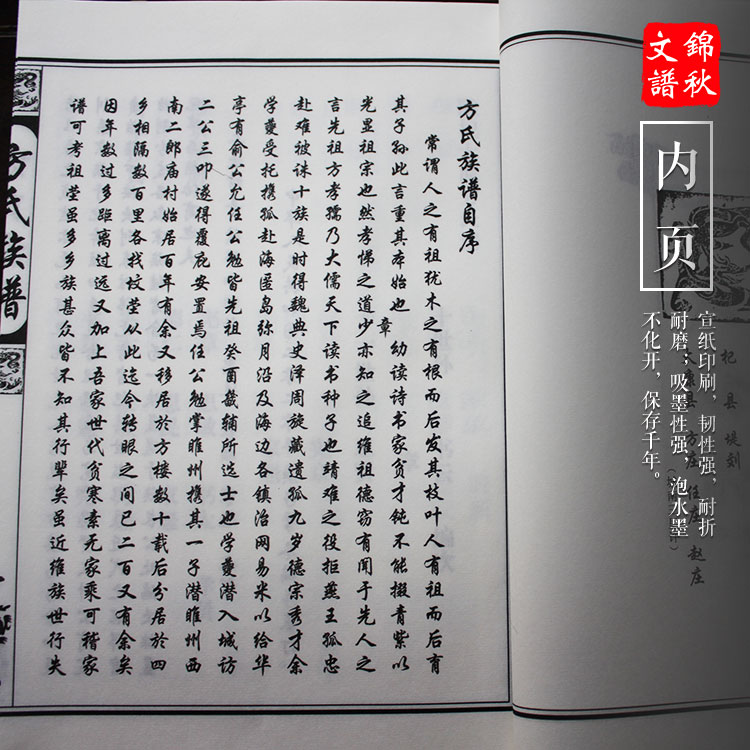 錦秋
文譜
内页
宣纸印刷，韧性强，耐折
耐磨，吸墨性强，泡水墨
不化开，保存千年。
杞县堤刻
太康县 方庄 任庄 赵庄
方氏族谱自序
常谓人之有祖犹木之有根而后发其枝叶人有祖而后有
其子孙此言重其本始也章幼读诗书家贫才钝不能掇青紫以
光显祖宗也然孝悌之道少亦知之追维祖德窃有闻于先人之
言先祖方孝孺乃大儒天下读书种子也靖难之役拒燕王孤忠
赴难被诛十族是时得魏典史泽周旋藏遗孤九岁德宗秀才余
学夔受托携孤赴海匿岛弥月沿及海边各镇治网易米以给华
亭有俞公允任公勉皆先祖癸酉畿辅所选士也学夔潜入城访
二公三叩遂得覆庇安置焉任公勉掌睢州携其一子潜睢州西
南二郎庙村始居百年有余又移居於方楼数十载后分居於四
乡相隔数百里各找坟茔从此迄今转眼之间已二百又有余矣
因年数过多距离过远又加上吾家世代贫寒素无家乘可稽家
谱可考祖茔虽多乡族甚众皆不知其行辈矣虽近维族世行失
方氏族谱